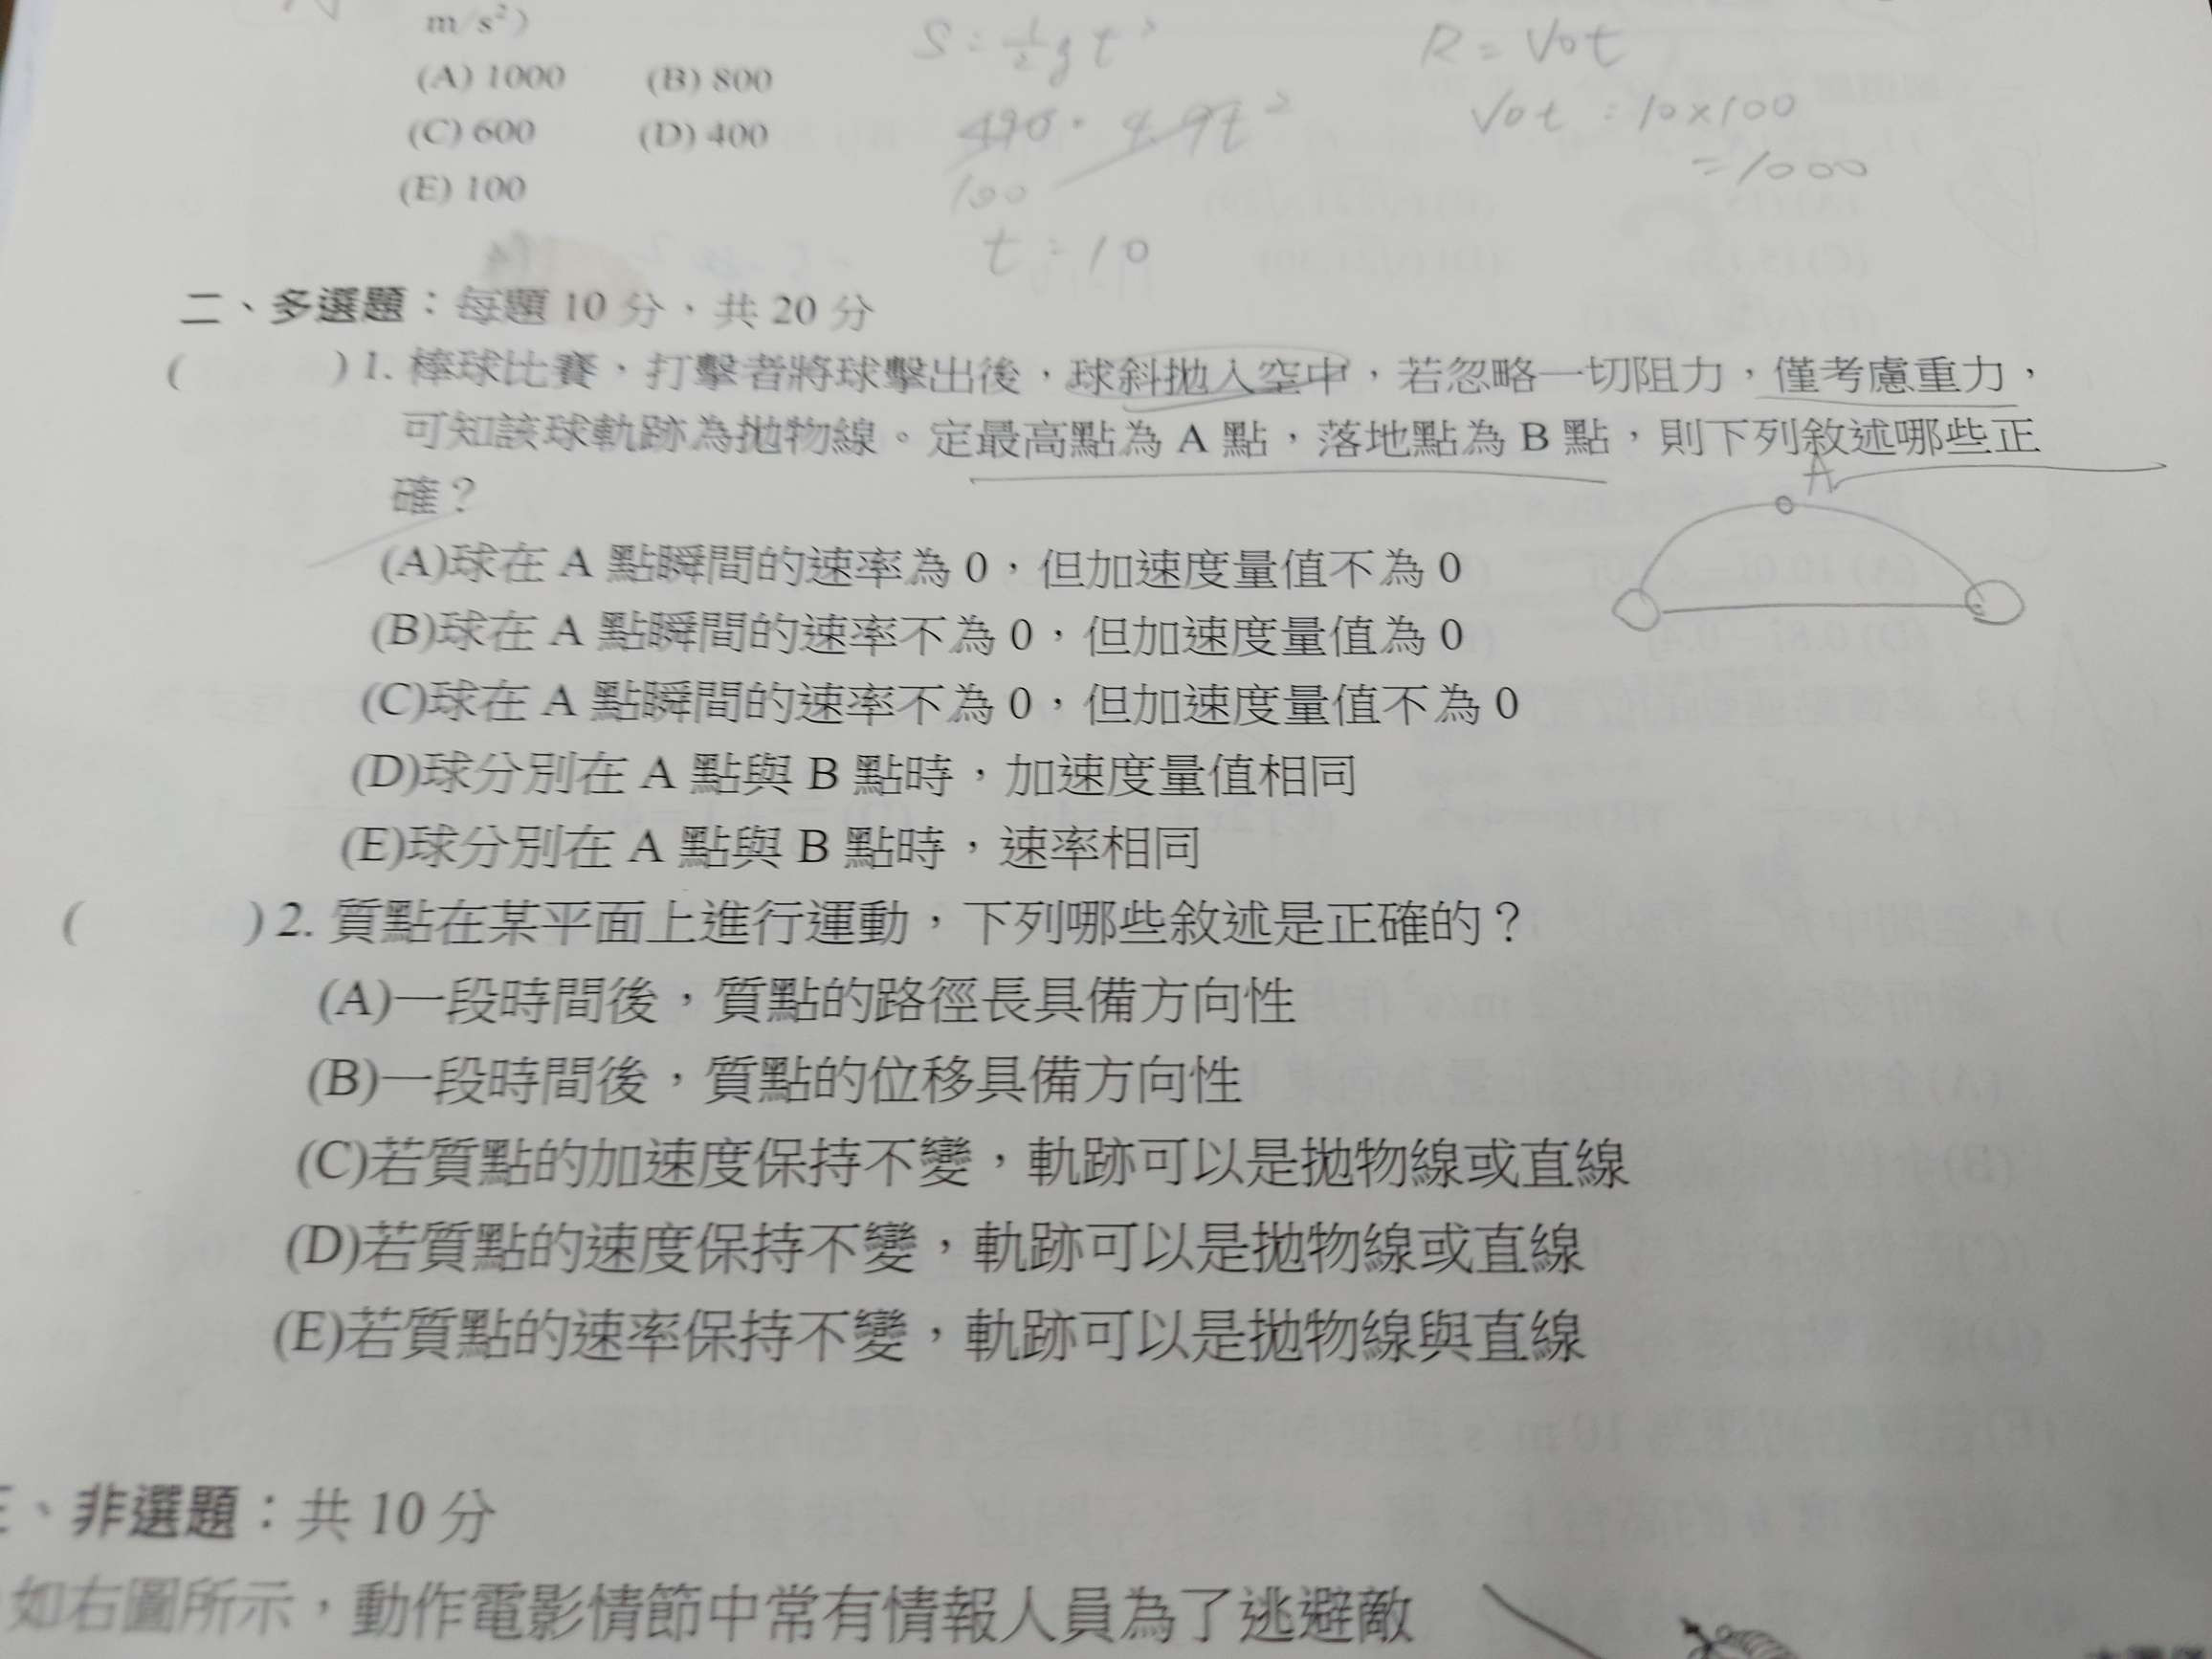 m/s²)
S = ½gt²
R = V0t
(A) 1000 (B) 800
490 = 4.9t²
V0t = 10×100
(C) 600 (D) 400
= 1000
(E) 100
100
t = 10
二、多選題：每題 10 分，共 20 分
( )1. 棒球比賽，打擊者將球擊出後，球斜拋入空中，若忽略一切阻力，僅考慮重力，
可知該球軌跡為拋物線。定最高點為 A 點，落地點為 B 點，則下列敘述哪些正
確？
A
(A)球在 A 點瞬間的速率為 0，但加速度量值不為 0
(B)球在 A 點瞬間的速率不為 0，但加速度量值為 0
(C)球在 A 點瞬間的速率不為 0，但加速度量值不為 0
(D)球分別在 A 點與 B 點時，加速度量值相同
(E)球分別在 A 點與 B 點時，速率相同
( )2. 質點在某平面上進行運動，下列哪些敘述是正確的？
(A)一段時間後，質點的路徑長具備方向性
(B)一段時間後，質點的位移具備方向性
(C)若質點的加速度保持不變，軌跡可以是拋物線或直線
(D)若質點的速度保持不變，軌跡可以是拋物線或直線
(E)若質點的速率保持不變，軌跡可以是拋物線與直線
三、非選題：共 10 分
如右圖所示，動作電影情節中常有情報人員為了逃避敵